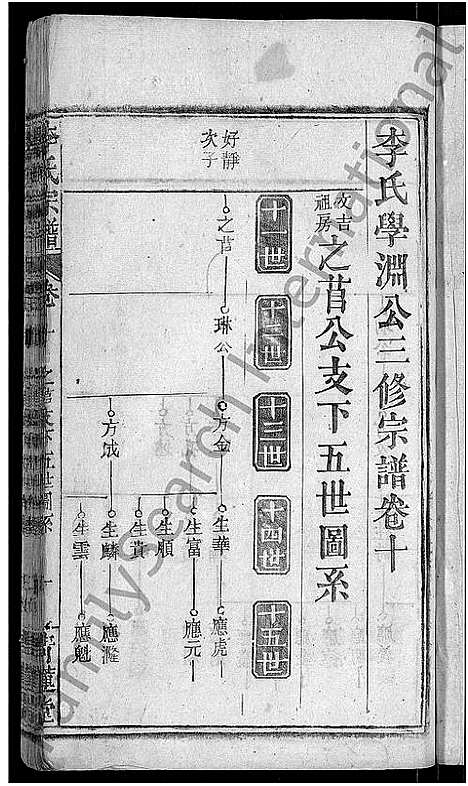 李氏學淵公三修宗譜卷十
攵吉祖房
之苜公支下五世圖系
十一世
十二世
十三世
十四世
十五世
好靜
次子
之苜
琳公
方金
生華
應虎
生富
應元
生順
生貴
方成
生麟
應瀧
生雲
應魁
李氏宗譜
卷十
之苜支下五世圖系
青蓮堂
FamilySearch International